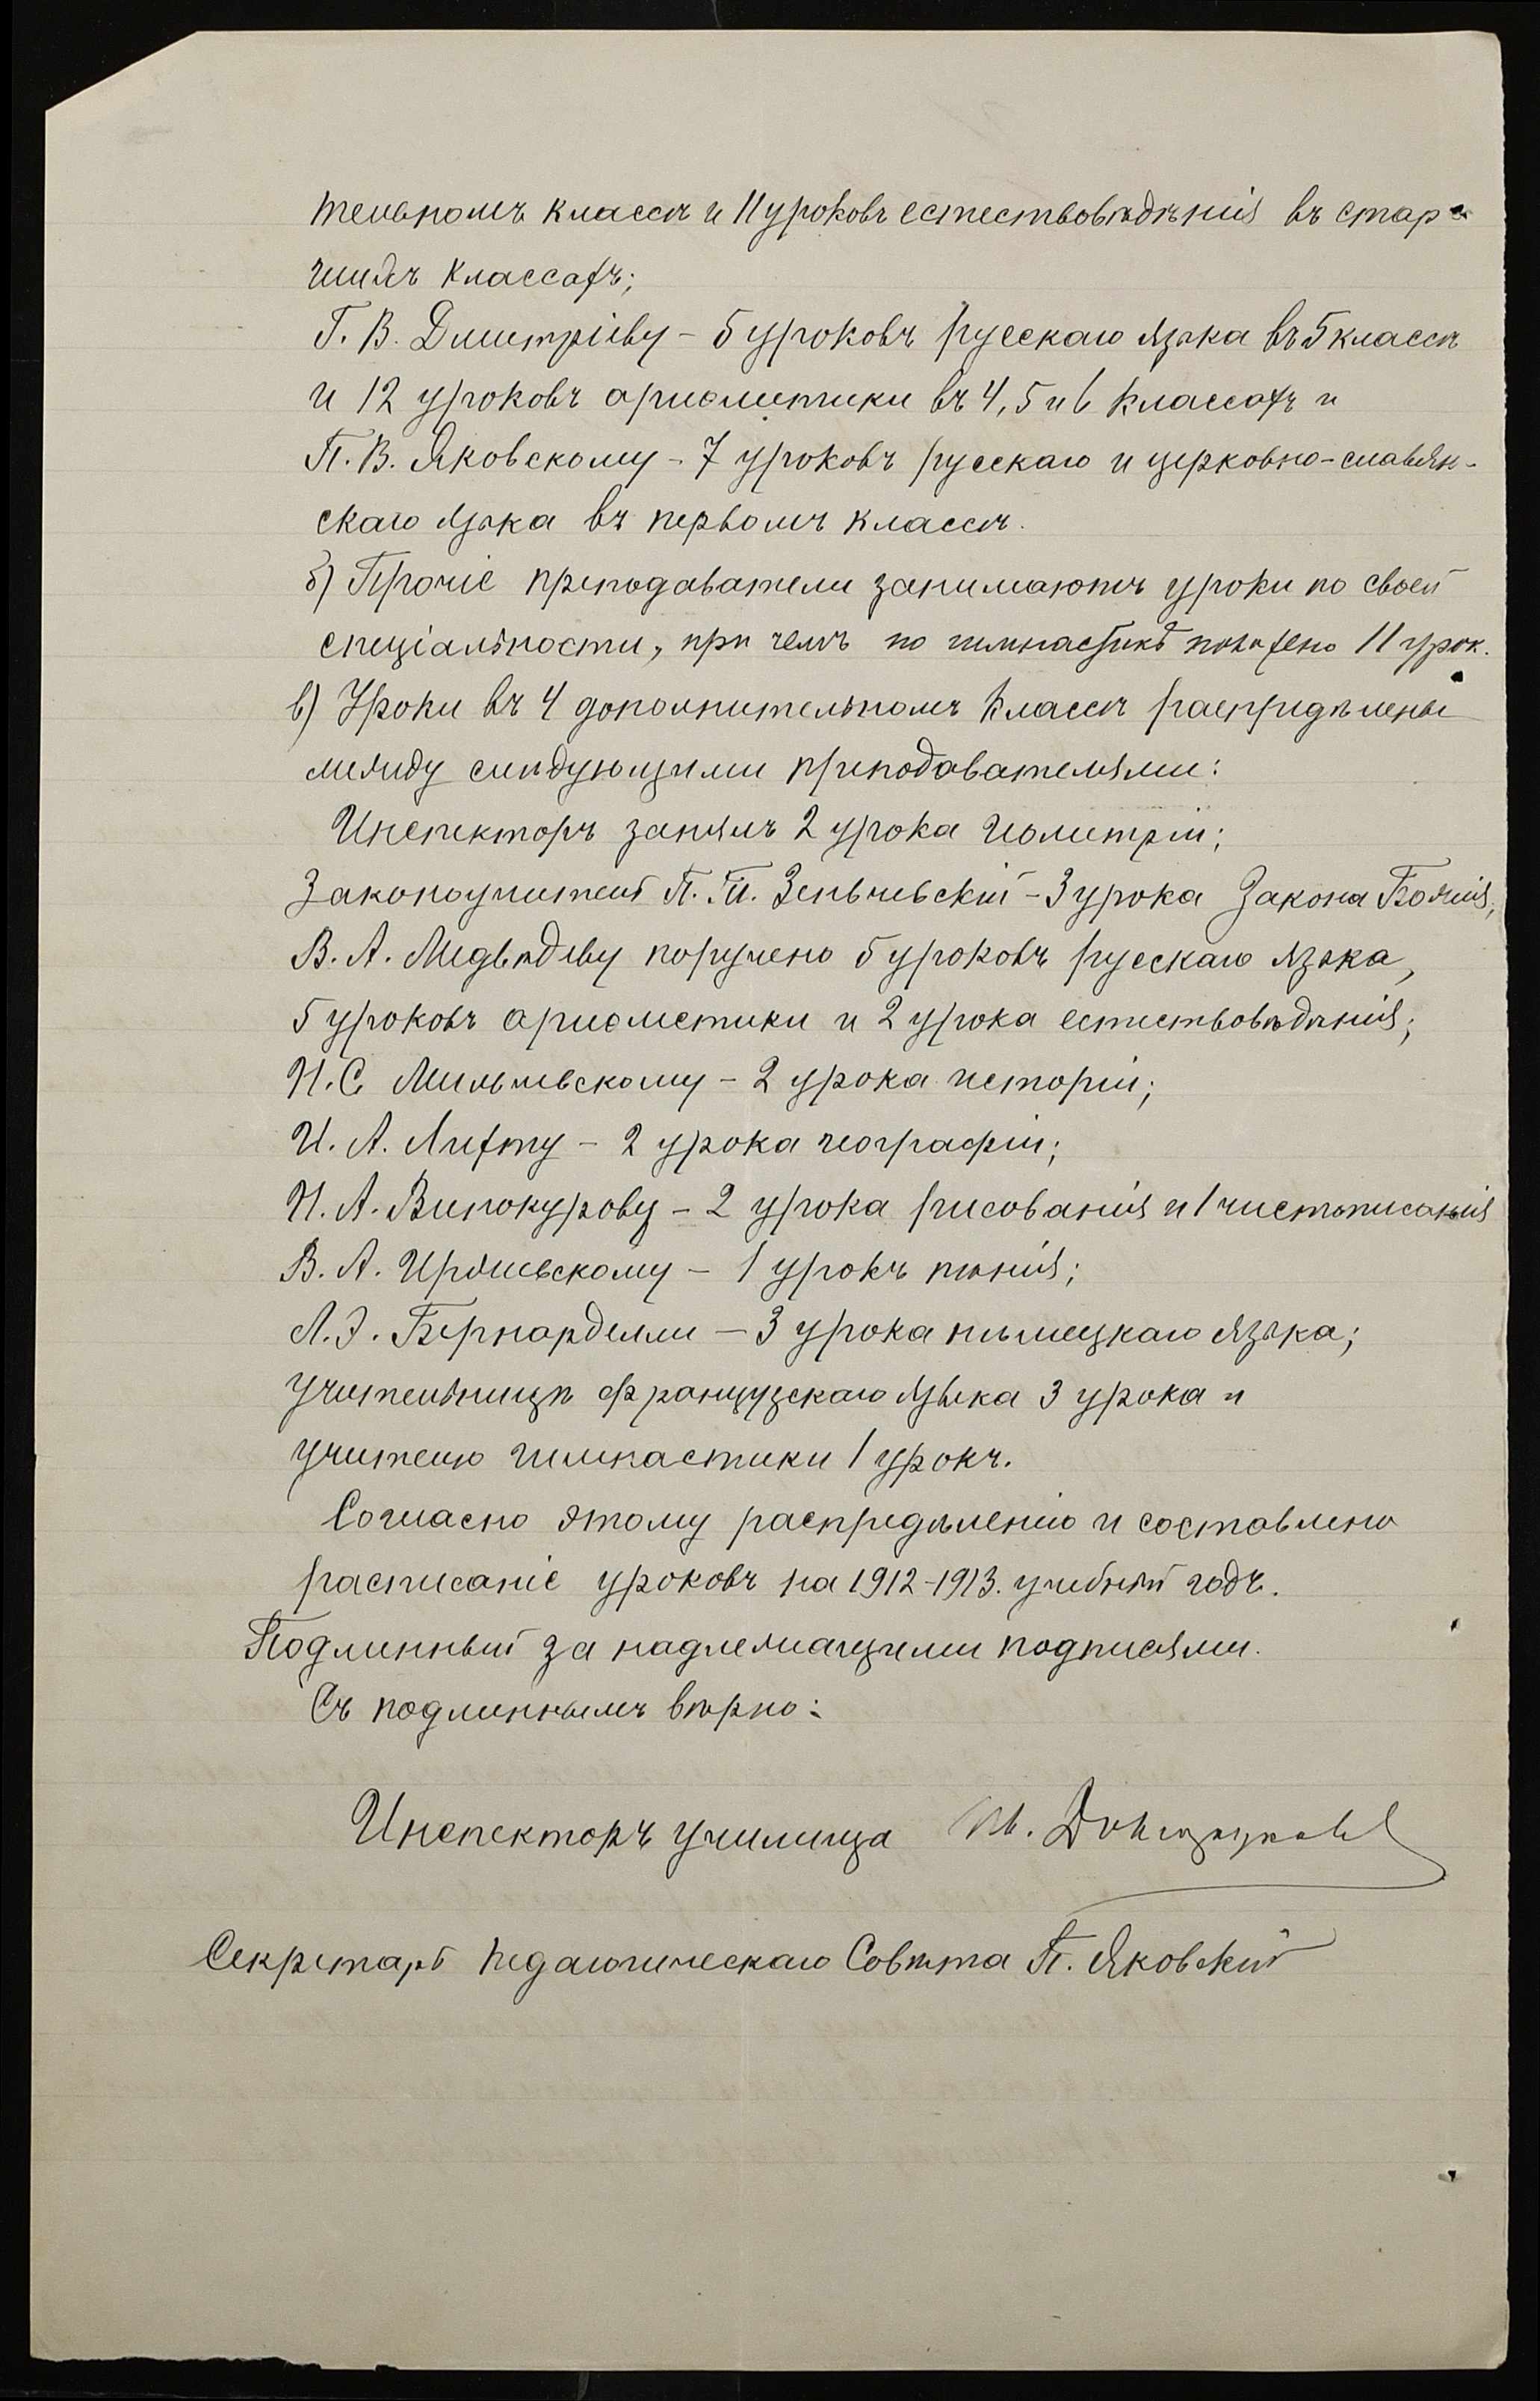 тельномъ классѣ и 11 уроковъ естествовѣдѣнія въ стар-
шихъ классахъ;
Г. В. Дмитріеву - 5 уроковъ русскаго языка въ 5 классѣ
и 12 уроковъ ариѳметики въ 4, 5 и 6 классахъ и
П. В. Яковскому - 7 уроковъ русскаго и церковно-славян-
скаго языка въ первомъ классѣ.
б) Прочіе преподаватели занимаютъ уроки по своей
спеціальности, при чемъ по гимнастикѣ 11 урок.
в) Уроки въ 4 дополнительномъ классѣ распредѣлены
между слѣдующими преподавателями:
Инспекторъ занялъ 2 урока геометріи;
Законоучитель П. П. Зеньчевскій - 3 урока Закона Божія,
В. А. Медвѣдеву поручено 5 уроковъ русскаго языка,
5 уроковъ ариѳметики и 2 урока естествовѣдѣнія;
И. С. Мильчевскому - 2 урока исторіи;
И. А. Лихту - 2 урока географіи;
Н. А. Винокурову - 2 урока рисованія и 1 чистописанія
В. А. - 1 урокъ пѣнія;
Л. Э. Бернарделли - 3 урока нѣмецкаго языка;
учительницѣ французскаго языка 3 урока и
учителю гимнастики 1 урокъ.
Согласно этому распредѣленію и составлено
расписаніе уроковъ на 1912-1913. учебный годъ.
Подлинный за надлежащими подписями.
Съ подлиннымъ вѣрно:
Инспекторъ училища
Секретарь Педагогическаго Совѣта П. Яковскій